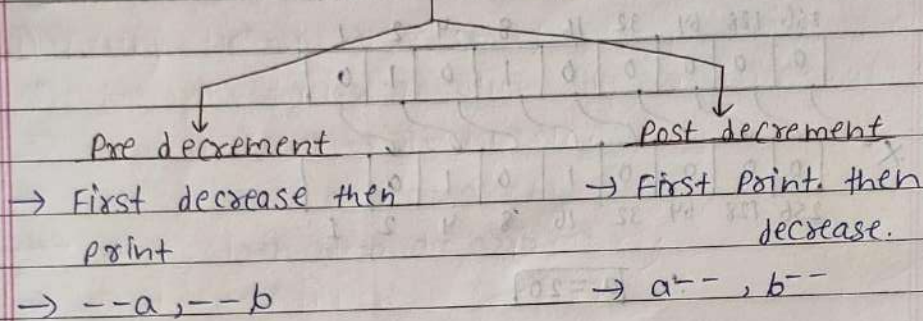 Pre decrement
→ First decrease then
print
→ --a, --b
Post decrement
→ First Print. then
decrease.
→ a--, b--